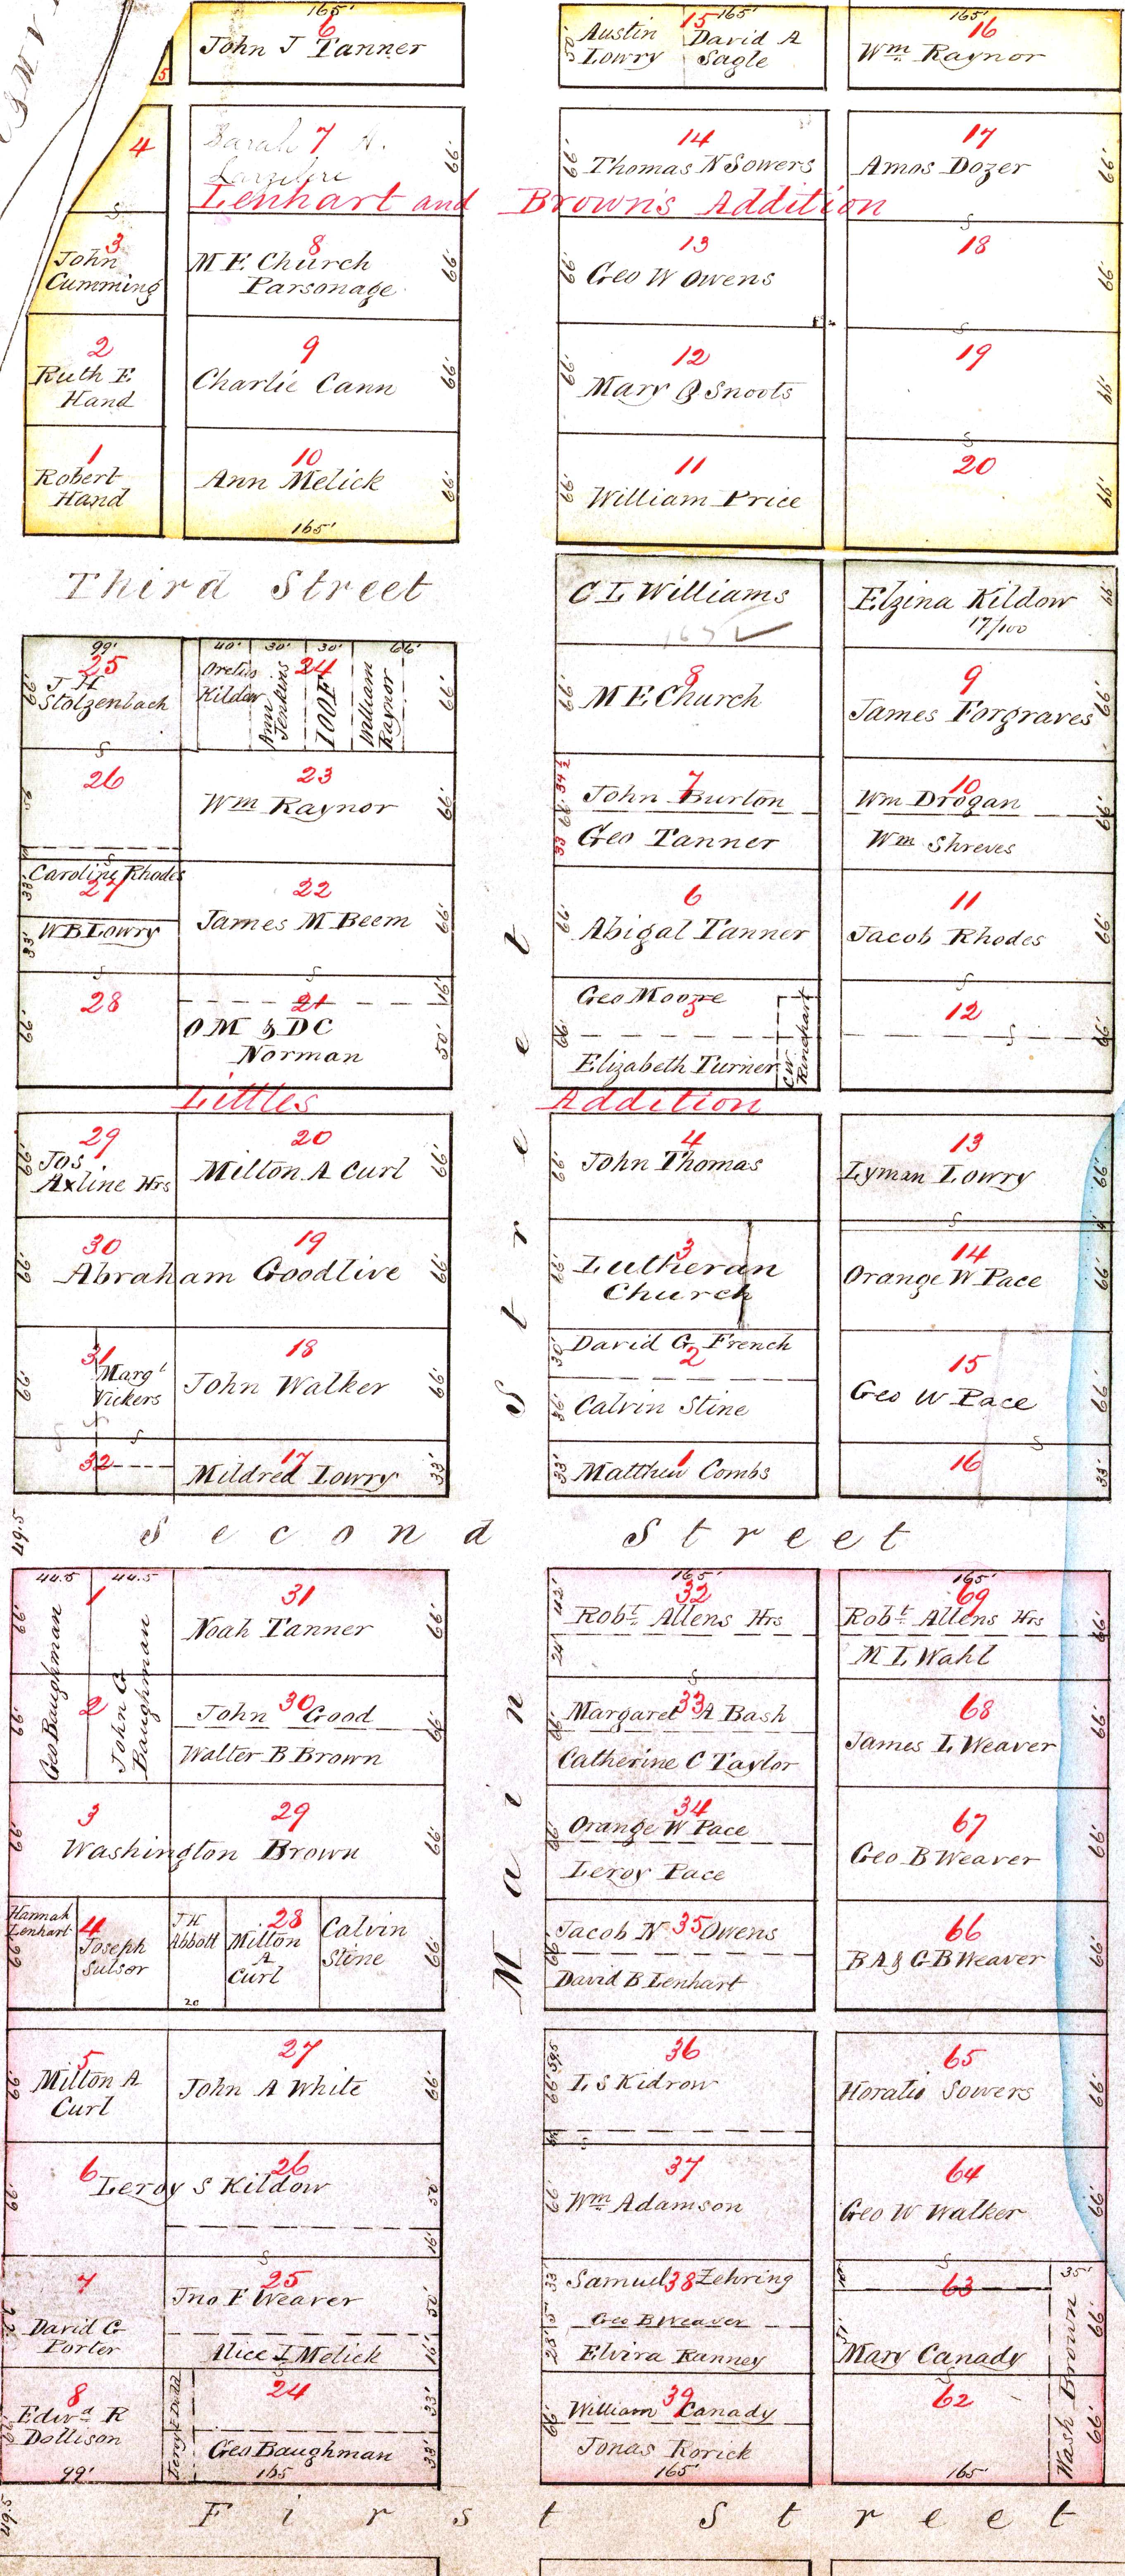 165'
6
John J Tanner
5
15 165'
Austin Lowry
David A Sagle
165'
16
Wm Raynor
4
7
Sarah A.
66'
14
Thomas N Sowers
66'
17
Amos Dozer
66'
Lenhart and Brown's Addition
3
John Cumming
8
M E Church
Parsonage
66'
13
Geo W Owens
66'
18
66'
2
Ruth E
Hand
9
Charlie Cann
66'
12
Mary Q Snoots
66'
19
66'
1
Robert
Hand
10
Ann Melick
66'
165'
11
William Price
66'
20
66'
Third Street
C L Williams
Elzina Kildow
17/100
66'
99'
25
J H
Stolzenbach
66'
40' 30' 30' 66'
24
Orelius
Kildow
Ann Jenkins
IOOF
William Raynor
66'
8
M E Church
66'
9
James Forgraves
66'
26
23
Wm Raynor
66'
7
John Burton
34 1/2
Geo Tanner
33
10
Wm Drogan
Wm Shreves
66'
Caroline Rhodes
27
33'
W B Lowry
33'
22
James M Beem
66'
6
Abigal Tanner
66'
11
Jacob Rhodes
66'
28
66'
21
16'
O M & D C
Norman
50'
Geo Moore
5
Elizabeth Turner
C W Rinehart
66'
12
66'
Littles Addition
29
Jos
Axline Hrs
66'
20
Milton A Curl
66'
4
John Thomas
66'
13
Lyman Lowry
66'
30 19
Abraham Goodlive
66'
66'
3
Lutheran
Church
66'
14
Orange W Pace
66'
31
Margt
Vickers
66'
18
John Walker
66'
David G French
30'
2
Calvin Stine
15
Geo W Pace
66'
32
17
Mildred Lowry
33'
1
Matthew Combs
33'
16
33'
Main Street
49.5
Second Street
44.5 44.5
1
Geo Baughman
John G
Baughman
66'
31
Noah Tanner
66'
165'
32
Robt Allens Hrs
24'
165'
69
Robt Allens Hrs
M L Wahl
66'
2
66'
30
John Good
Walter B Brown
66'
33
Margaret A Bash
Catherine C Taylor
66'
68
James L Weaver
66'
3 29
Washington Brown
66'
66'
34
Orange W Pace
Leroy Pace
66'
67
Geo B Weaver
66'
Hannah
Lenhart
4
Joseph
Sulsor
66'
J H
Abbott
20
28
Milton
A
Curl
Calvin
Stine
66'
35
Jacob N Owens
David B Lenhart
66'
66
B A & G B Weaver
66'
5
Milton A
Curl
66'
27
John A White
66'
36
59.5
L S Kidrow
66'
65
Horatio Sowers
66'
6 26
Leroy S Kildow
66'
50'
16'
37
Wm Adamson
66'
64
Geo W Walker
66'
7
David G
Porter
25
Jno F Weaver
50'
Alice I Melick
16'
38
Samuel Zehring
33'
Geo B Weaver
5'
Elvira Ranney
28'
63
Mary Canady
51'
35'
66'
8
Edwd R
Dollison
66'
99'
24
33'
Geo Baughman
33'
165
39
William Canady
Jonas Rorick
66'
165'
62
165'
Wash Brown
66'
49.5
First Street